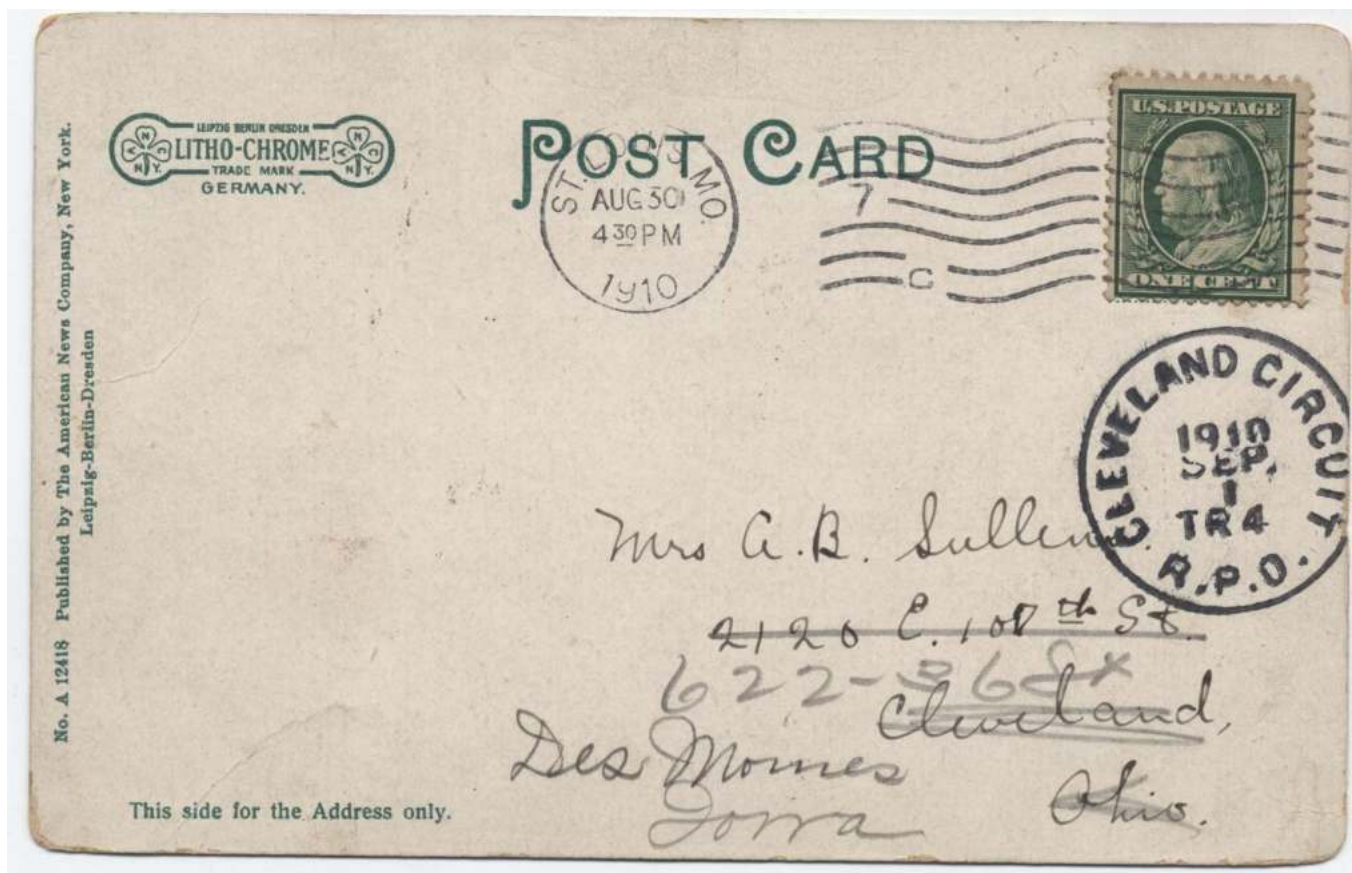 No. A 12418 Published by The American News Company, New York.
Leipzig-Berlin-Dresden
LEIPZIG BERLIN DRESDEN
LITHO-CHROME
TRADE MARK
GERMANY.
N
N
N.Y.
N.Y.
POST CARD
ST. LOUIS, MO.
AUG 30
4 30 PM
1910
7
C
U.S. POSTAGE
ONE CENT
CLEVELAND CIRCUIT
1910
SEP.
1
TR 4
R.P.O.
Mrs A.B. Sullen
2120 E. 108th St.
622-36 St
Cleveland,
Des Moines
Ohio.
Iowa
This side for the Address only.